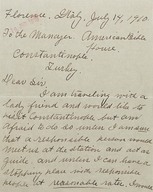 Florence, Italy, July 14, 1910.
To the Manager American
House
Constantinople,
Turkey
Dear Sir,
I am traveling with a
lady friend and would like to
visit Constantinople but am
afraid to do so unless I am sure
that a responsible person would
meet us at the station and act as
guide, and unless I can have a
stopping place with responsible
people at reasonable rate. I